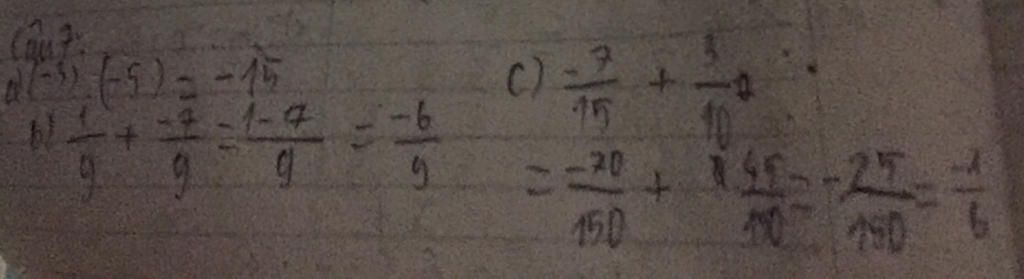 Câu 7:
a) (-3) . (-5) = -15
b) 1/9 + -7/9 = 1-7/9 = -6/9
c) -7/15 + 3/10
= -70/150 + 45/150 = -25/150 = -1/6